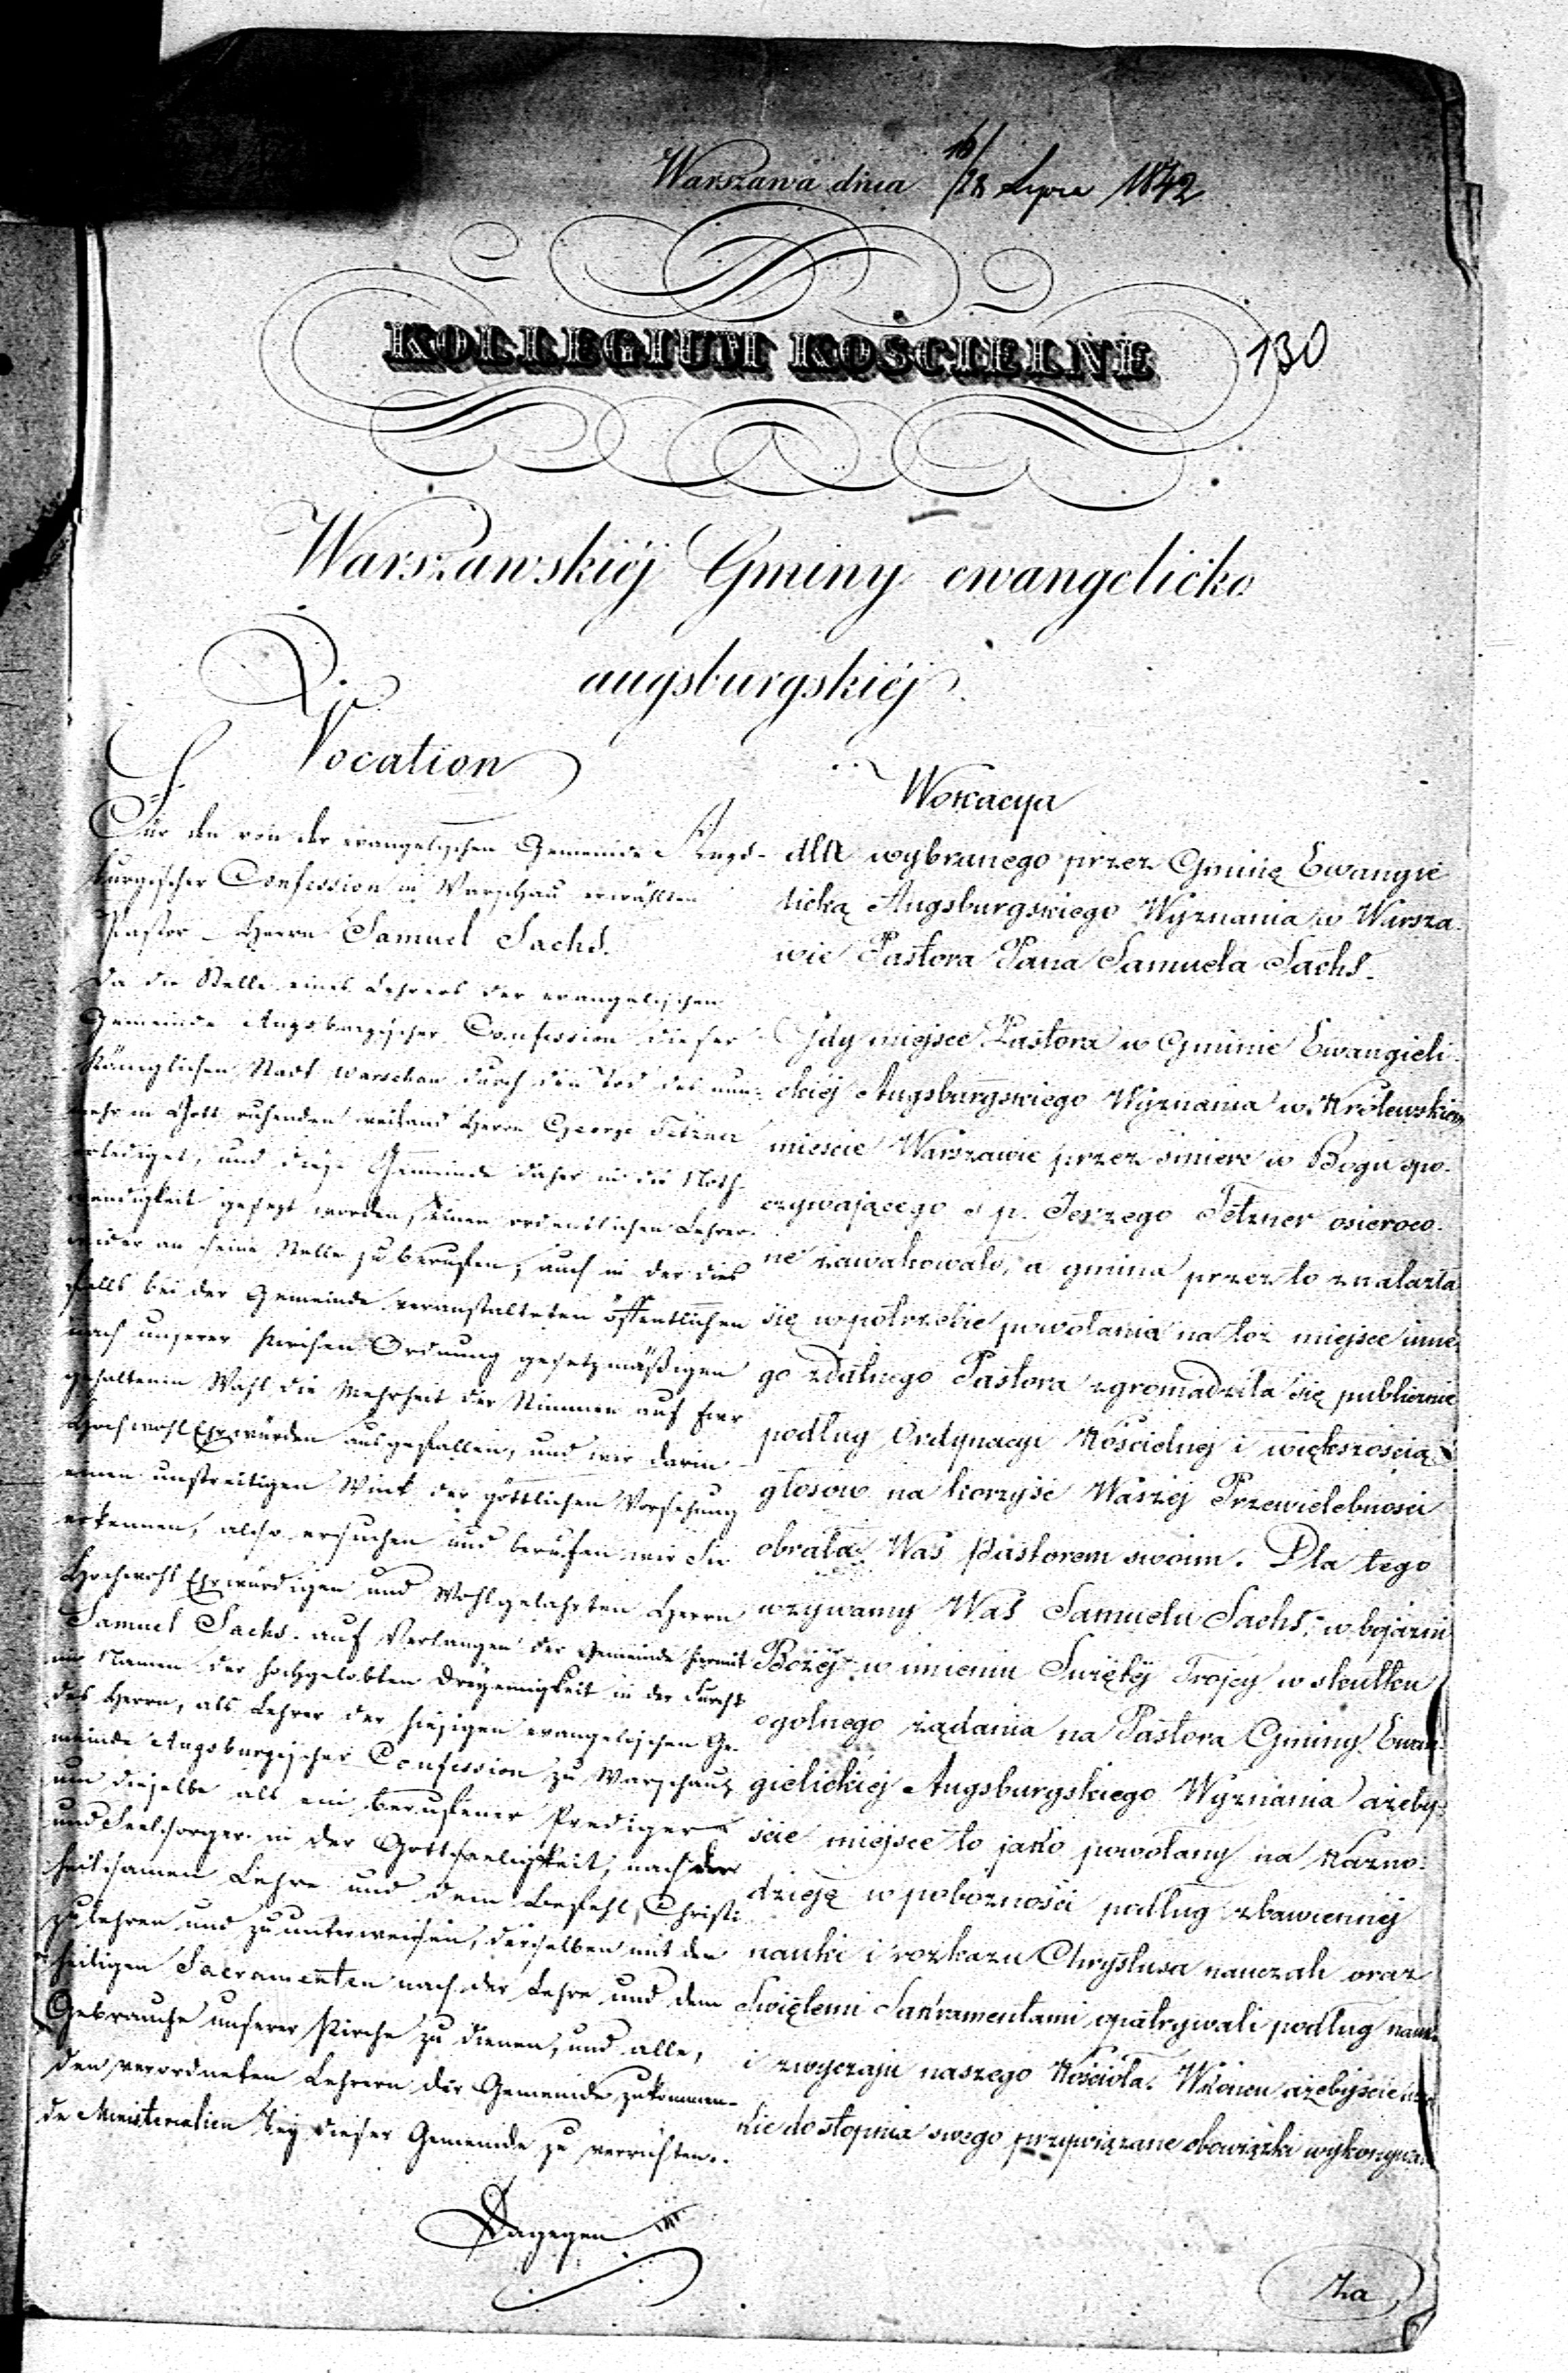 Warszawa dnia 16/28 Lipca 1842
KOLLEGIUM KOSCIELNE
130
Warszawskiéj Gminy ewangelicko
augsburgskiéj
Vocation
Für den von der evangelischen Gemeinde Augs-
burgischer Confession in Warschau erwählten
Pastor Herrn Samuel Sachs.
Da die Stelle eines Lehrers der evangelischen
Gemeinde Augsburgischer Confession dieser
Königlichen Stadt Warschau durch den Tod des nun-
mehr in Gott ruhenden weiland Herrn George Tetzner
erlediget, und diese Gemeinde daher in die Noth-
wendigkeit gesezt worden, einen ordentlichen Lehrer
wieder an seine Stelle zu berufen, auch in der dies
falls bei der Gemeinde veranstalteten öffentlichen
nach unserer Kirchen Ordnung gesetzmäßigen
gehaltenen Wahl die Mehrheit der Stimmen auf Euer
HochwohlEhrwürden ausgefallen, und wir darin
einen unstreitigen Wink der göttlichen Vorsehung
erkennen, also ersuchen und berufen wir Sie
Hochwohl Ehrwürdigen und Wohlgelahrten Herrn
Samuel Sachs. auf Verlangen der Gemeinde hiermit
im Namen der hochgelobten Dreyeinigkeit in der Furcht
des Herrn, als Lehrer der hiesigen evangelischen Ge-
meinde Augsburgischer Confession zu Warschau,
um dieselbe als ein berufener Prediger
und Seelsorger in der Gottseeligkeit, nach der
heilsamen Lehre und dem Befehl Christi
zu lehren und zu unterweisen, derselben mit den
heiligen Sacramenten nach der Lehre und dem
Gebrauche unserer Kirche zu dienen, und alle,
den verordneten Lehrern der Gemeinde zukommen-
de Ministerialien bey dieser Gemeinde zu verrichten.
Dagegen
Wokacya
dla wybranego przez Gminę Ewangie
licką Augsburgskiego Wyznania w Warsza-
wie Pastora Pana Samuela Sachs.
Gdy miejsce Pastora w Gminie Ewangieli-
ckiéj Augsburgskiego Wyznania w Królewskiem
mieście Warszawie przez śmierć w Bogu spo-
czywającego ś p. Jerzego Tetzner osieroco-
ne zawakowało, a gmina przez to znalazła
się w potrzebie powołania na toż miejsce inne-
go zdatnego Pastora zgromadziła się publicznie
podług Ordynacyi Kościelnej i większością
głosów na korzyść Waszéj Przewielebności
obrała Was Pastorem swoim. Dla tego
wzywamy Was Samuelu Sachs, w bojaźni
Bożéj w imieniu Swiętéj Trojcy w skutku
ogolnego żądania na Pastora Gminy Ewan-
gielickiéj Augsburgskiego Wyznania ażeby-
ście miejsce to jako powołany na Kazno-
dzieję w pobożności podług zbawiennéj
nauki i rozkazu Chrystusa nauczali oraz
Swiętemi Sakramentami opatrywali podług nauki
i zwyczaju naszego Kościoła. W końcu ażebyście
kie do stopnia swego przywiązane obowiązki wykonywali
Za